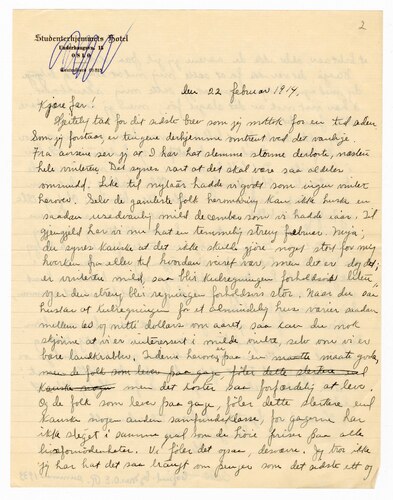 2
Studenterhjemmets Hotel
Underhaugsv. 15
OSLO
den 22 februar 1914.
Kjære far!
Hjertelig tak for det sidste brev som jeg mottok for en tid siden
Som jeg forstaar er tingene derhjemme omtrent ved det vanlige.
Fra avisene ser jeg at I har hat slemme storme derborte, næsten
hele vinteren. Det synes rart at det skal være saa aldeles
omsnudd. Like til nyttaar hadde vi godt som ingen vinter
herover. Selv de gamleste folk hermkring kan ikke huske en
saadan usedvanlig mild december som vi hadde iaar. Til
gjengjeld har vi nu hat en temmelig streng februar. Nuja;
du synes kanske at det ikke skulde gjøre noget stort for mig
hverken fra eller til hvordan veiret var, men det er dog det;
er vinteren mild, saa blir kulregningen forholdsvis liten,
og er den streng blir regningen forholdsvis stor. Naar du saa
husker at kulregningen for et almindelig hus varier saaden
mellem og nitti dollars om aaret, saa kan du nok
skjønne at vi er interessert i milde vintre, selv om vi er
bare landkrabber. I denne henover paa en maate maate godt,
men de folk som lever paa gage, føler dette slettere end
kanske nogen men det koster saa forfærdelig at leve.
Og de folk som lever paa gage, føler dette slettere end
kanske nogen anden samfundsklasse, for gagerne har
ikke steget i samme grad som de høie priser paa alle
livsfornødenheter. Vi føler det ogsaa, desværre. Jeg tror ikke
jeg har hat det saa trangt om penger som det sidste ett og